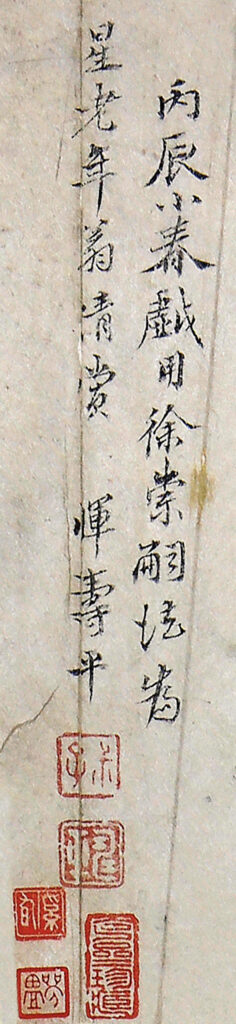 丙辰小春戲用徐崇嗣法為
星老年翁清賞 惲壽平